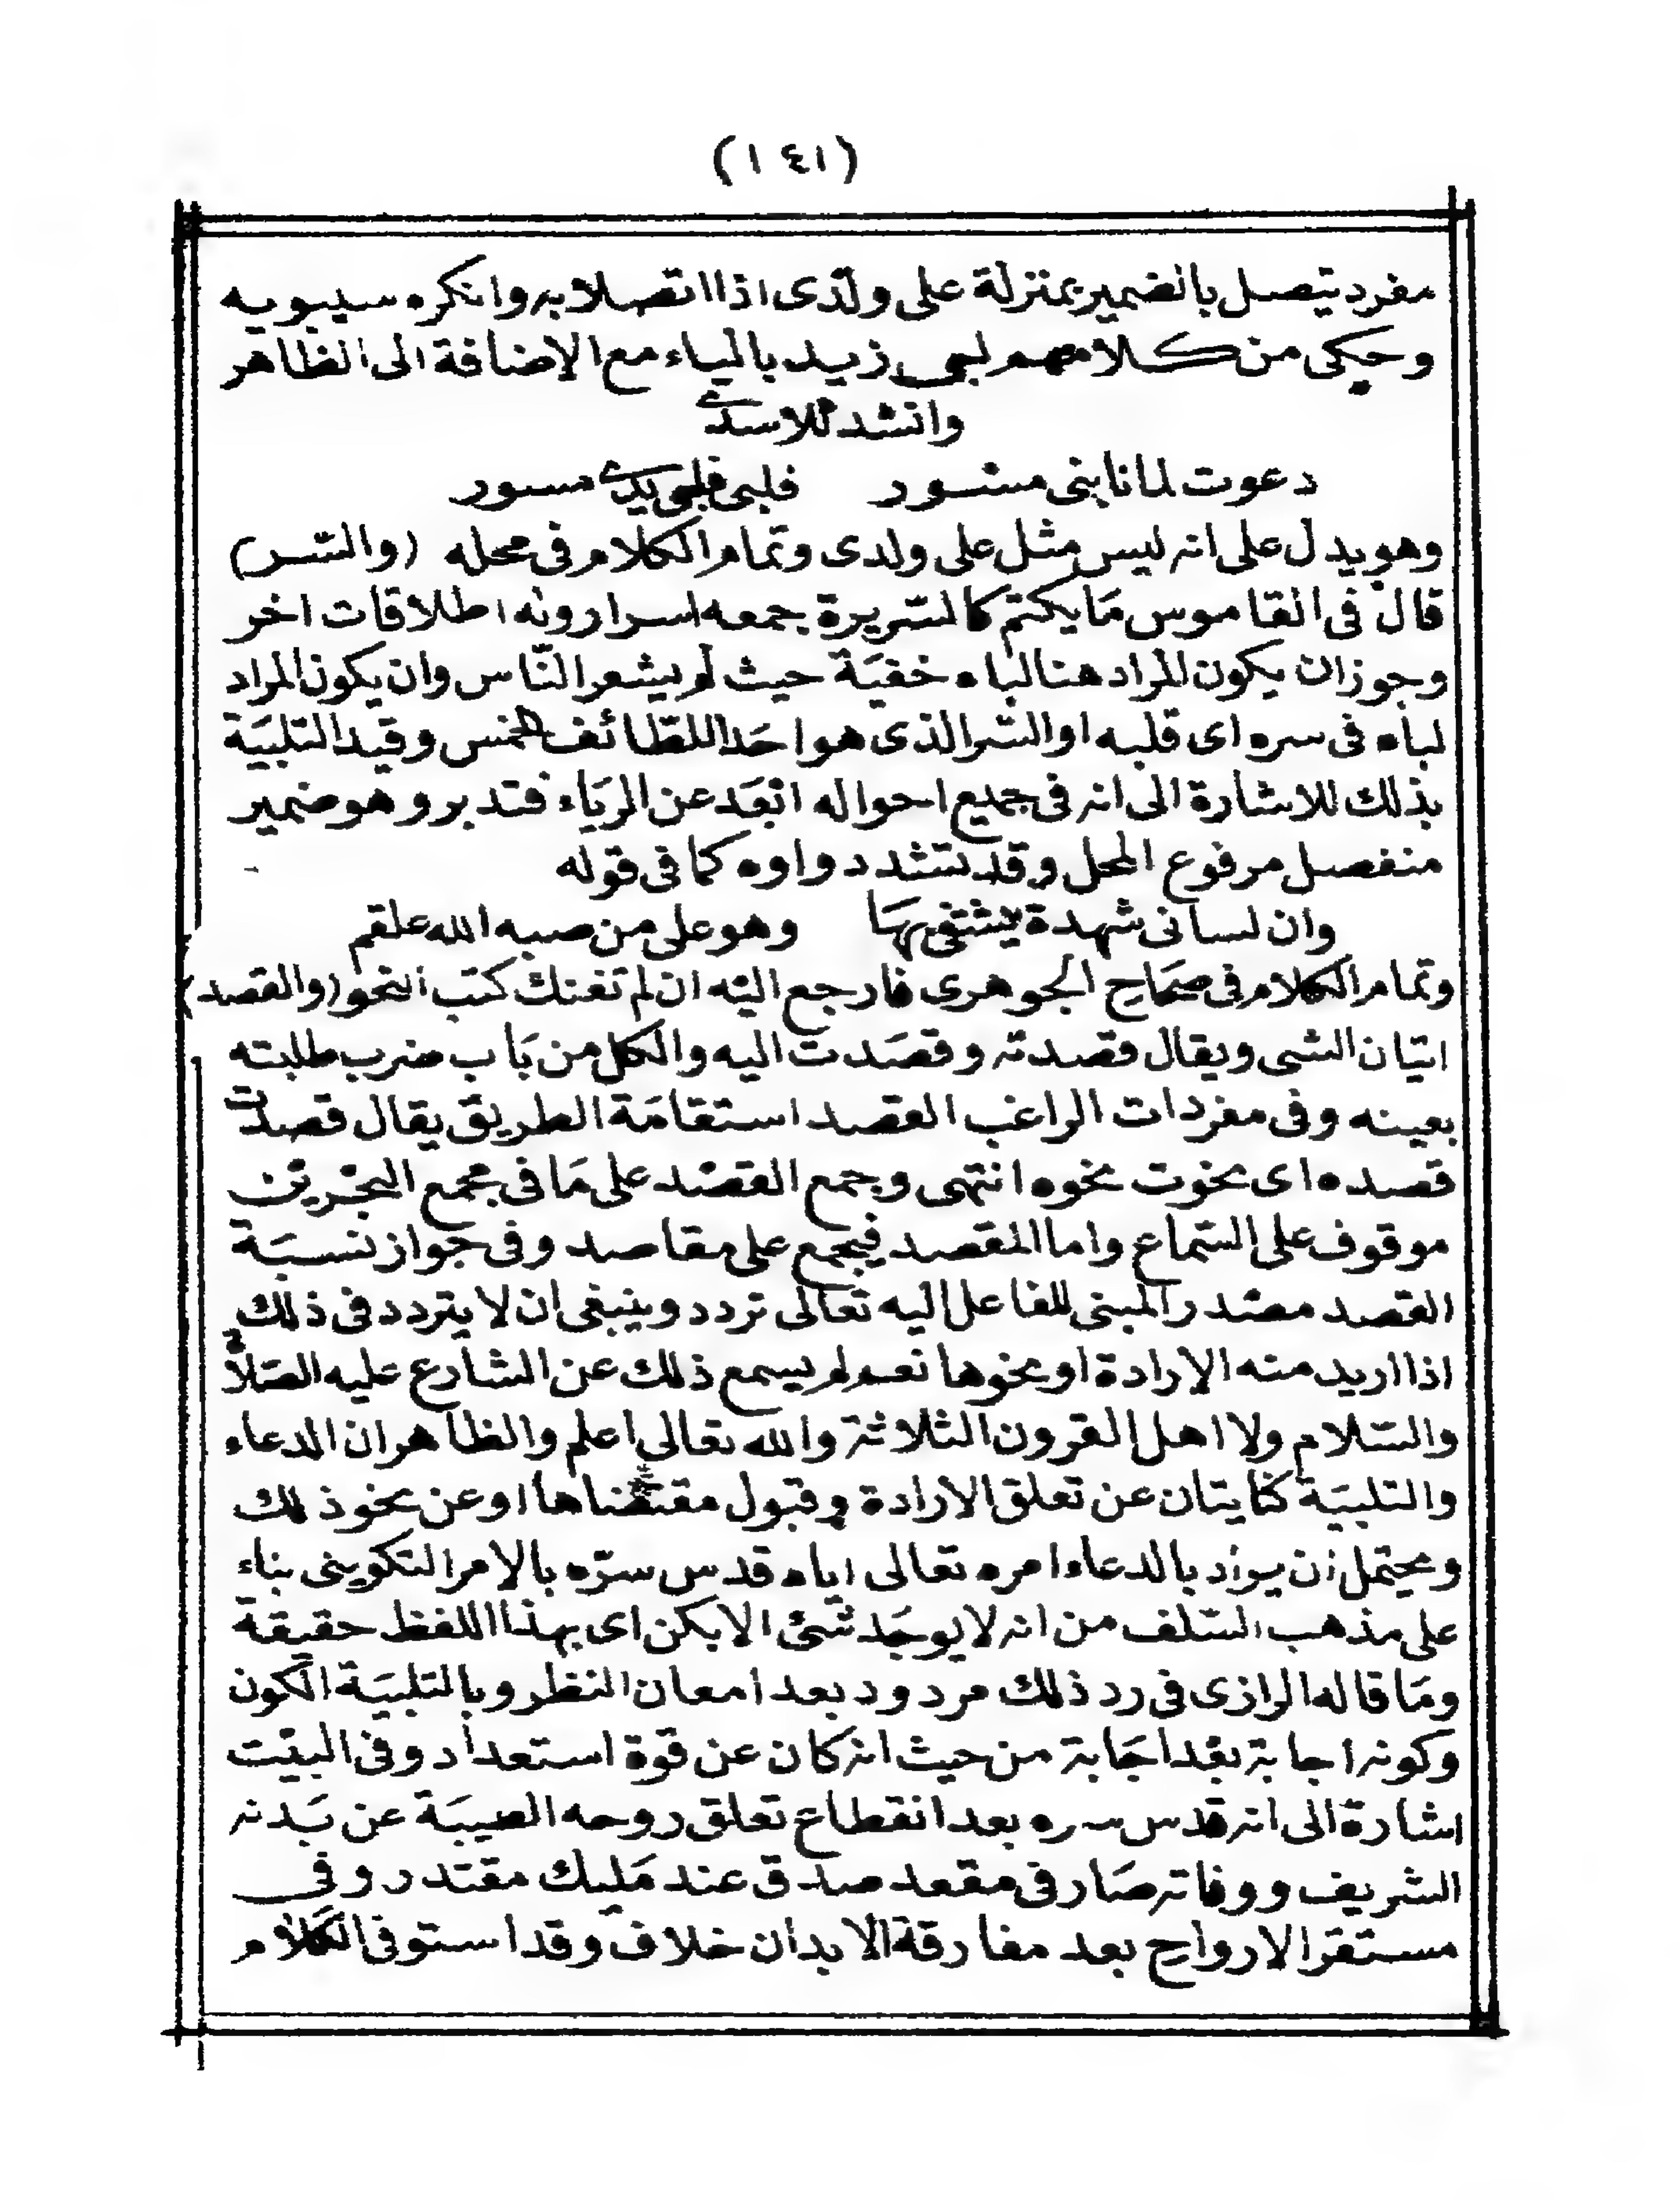 (١٤١)
مفرد يتصل بالضمير بمنزلة على ولدى اذا اتصلا به وانكره سيبويه
وحكى من كلامهم لبى زيد بالياء مع الاضافة الى الظاهر
وانشد للاسدى
دعوت لما نابنى مسور فلبى فلبى يدى مسور
وهو يدل على انه ليس مثل على ولدى وتمام الكلام فى محله (والسر)
قال فى القاموس مَا يكتم كالسَّريرة جمعه اسرار وله اطلاقات اخر
وجوز ان يكون المراد هنا لباه خفيَة حيث لم يشعر النّاس وان يكون المراد
لباه فى سره اى قلبه او السر الذى هو احَد اللطَائف الخمس وقيد التلبيَة
بذلك للاشارة الى انه فى جميع احواله ابعَد عن الريَاء فتدبر وهو ضمير
منفصل مرفوع المحل وقد تشدد واوه كما فى قوله
وان لسانى شهدة يشتفى بهَا وهو على من صبه الله علقم
وتمام الكلام فى صحَاح الجوهرى فارجع اليه ان لم تغنك كتب النحو (والقصد)
اتيان الشى ويقال قصدته وقصَدت اليه والكل من بَاب ضرب طلبته
بعينه وفى مفردات الراغب القصد استقامَة الطريق يقال قصدت
قصده اى نحوت نحوه انتهى وجمع القصد على مَا فى مجمع البحرين
موقوف على السَّماع واما المقصد فيجمع على مقاصد وفى جواز نسبَة
القصد مصدر المبنى للفاعل اليه تعالى تردد وينبغى ان لا يتردد فى ذلك
اذا اريد منه الارادة او نحوها نعم لم يسمع ذلك عن الشارع عليه الصَلاة
والسَّلام ولا اهل القرون الثلاثة والله تعالى اعلم والظاهر ان الدعاء
والتلبيَة كنايتان عن تعلق الارادة وقبول مقتضاها او عن نحو ذلك
ويحتمل ان يراد بالدعاء امره تعالى اياه قدس سرّه بالامر التكوينى بناء
على مذهب السَّلف من انه لا يوجَد شئ الا بكن اى بهذا اللفظ حقيقة
ومَا قاله الرازى فى رد ذلك مردود بعد امعان النظر وبالتلبيَة الكون
وكونه اجابة بعْد اجَابة من حيث انه كان عن قوة استعداد وفى البيت
اشارة الى انه قدس سره بعد انقطاع تعلق روحه الطيبَة عن بَدنه
الشريف ووفاته صَار فى مقعد صدق عند مَليك مقتدر وفى
مستقر الارواح بعد مفارقة الابدان خلاف وقد استوفى الكَلام